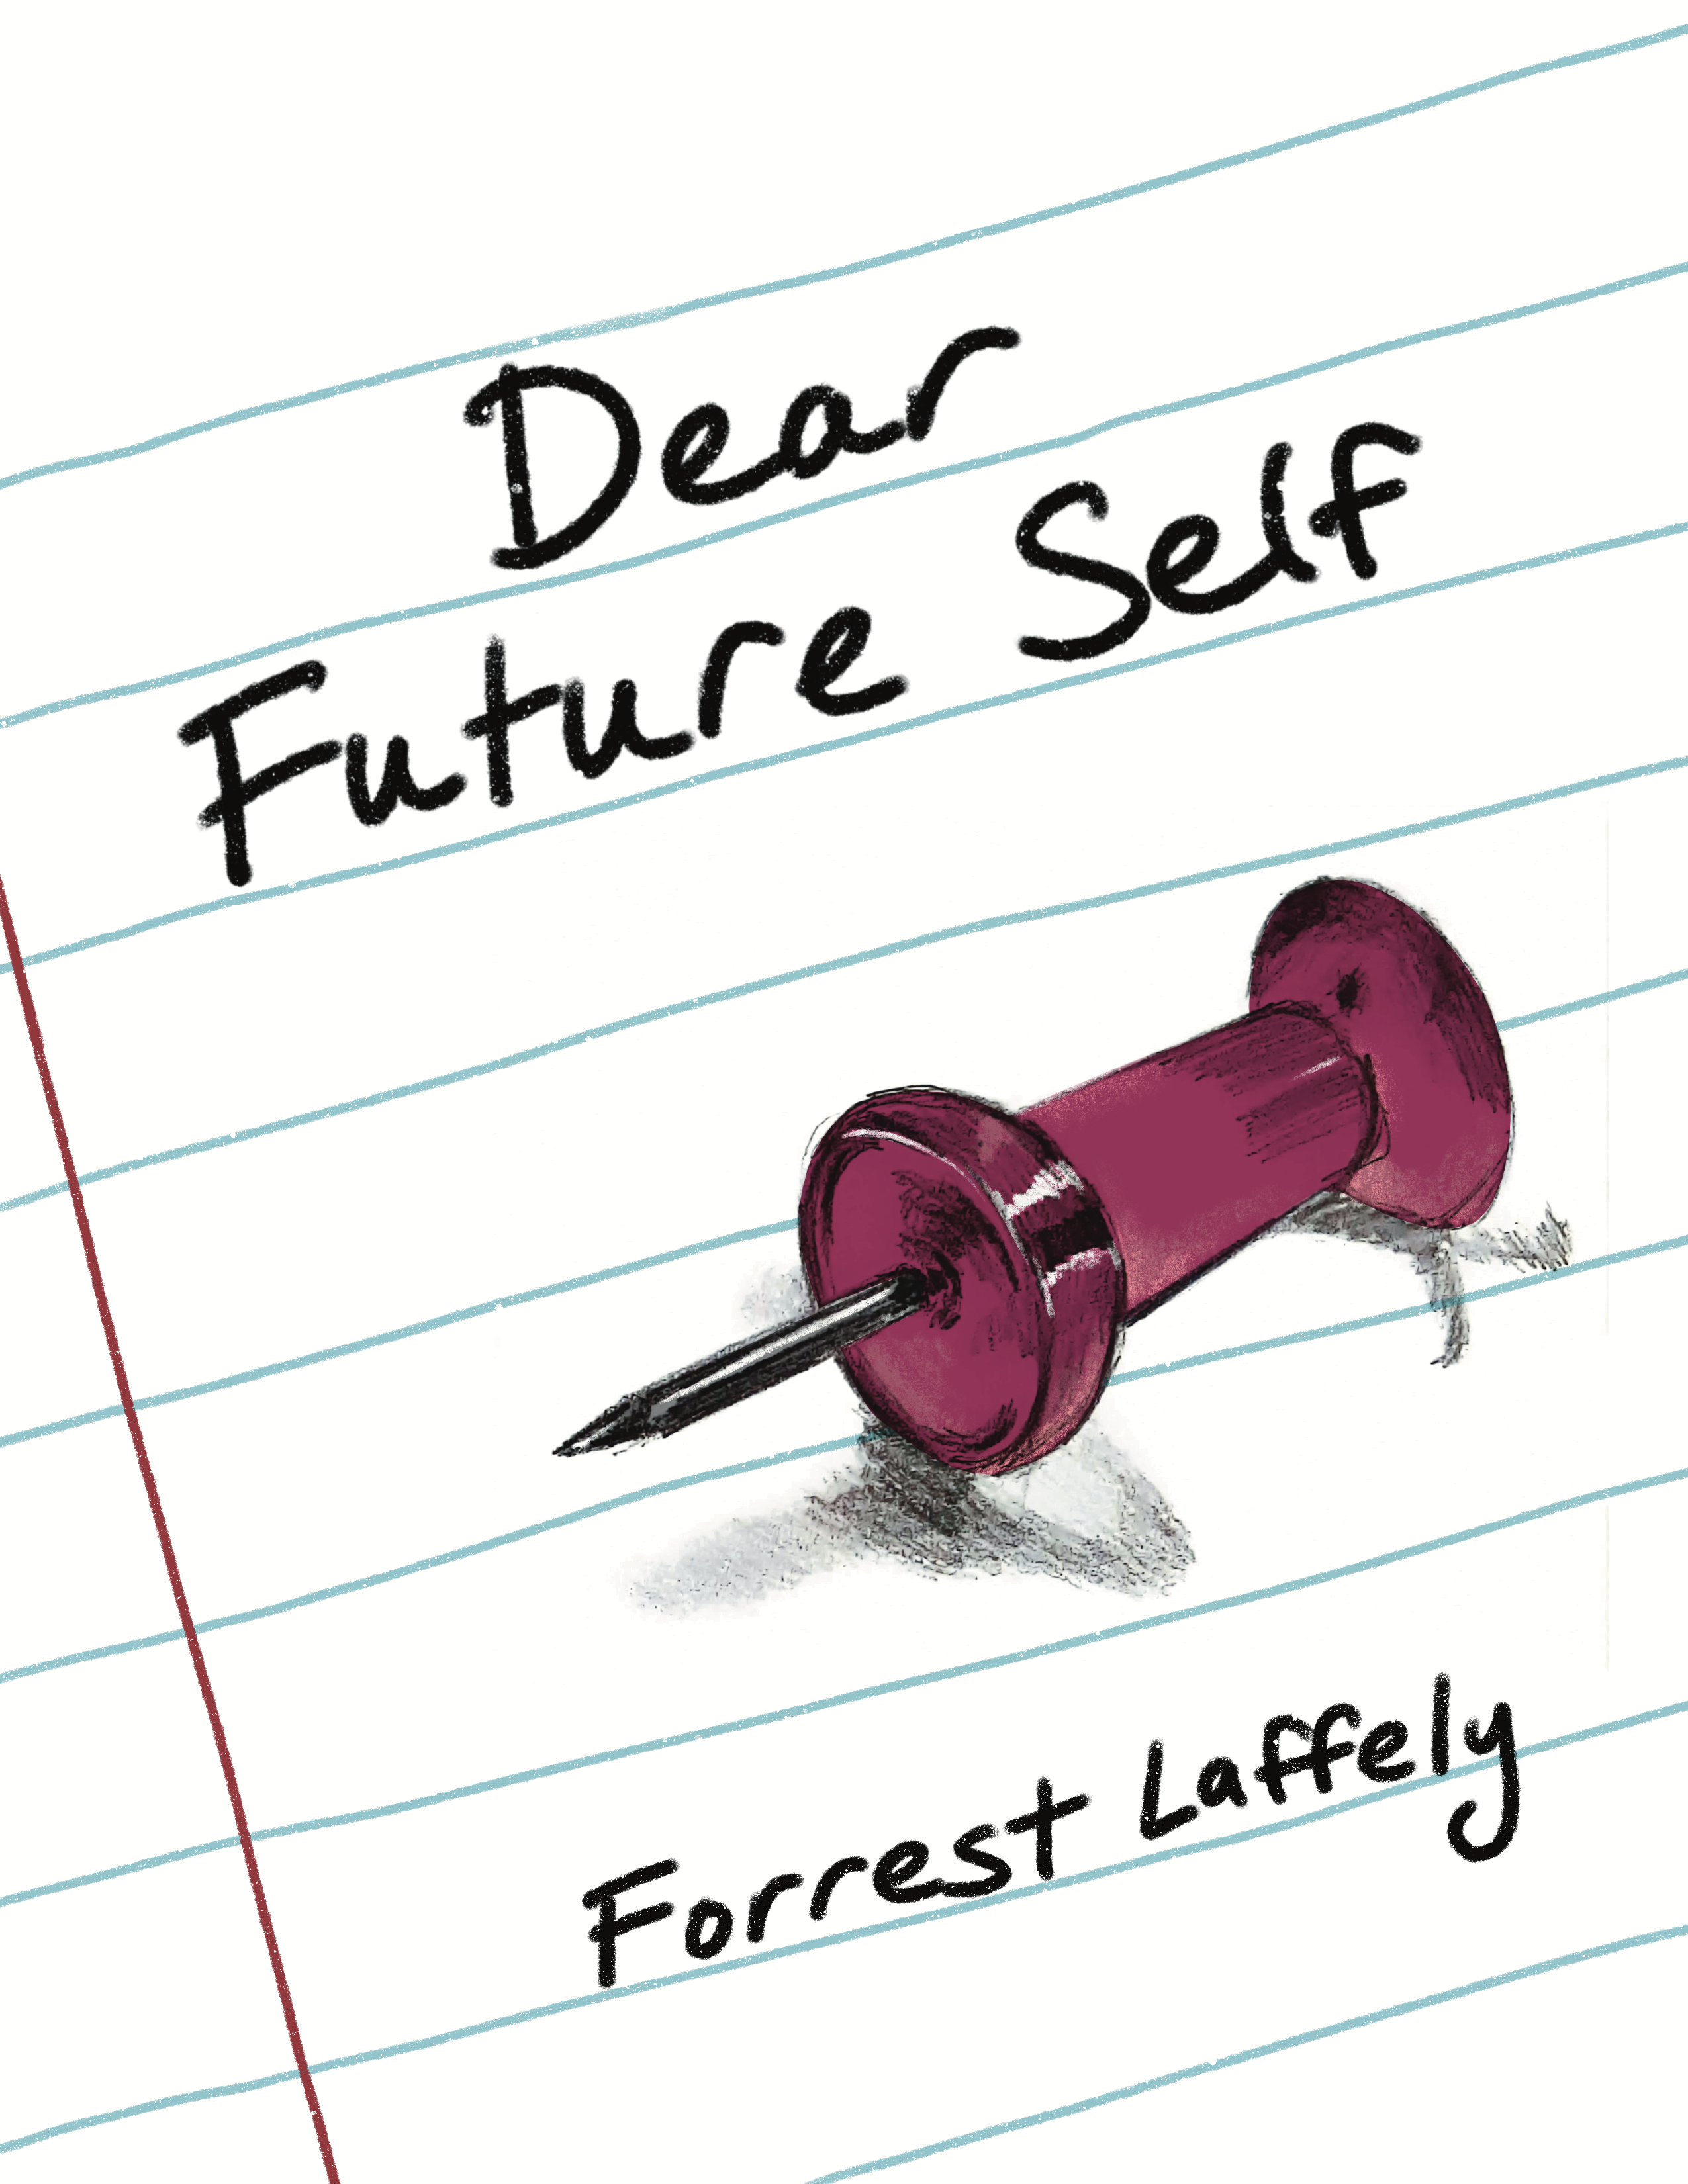 Dear
Future Self
Forrest Laffely